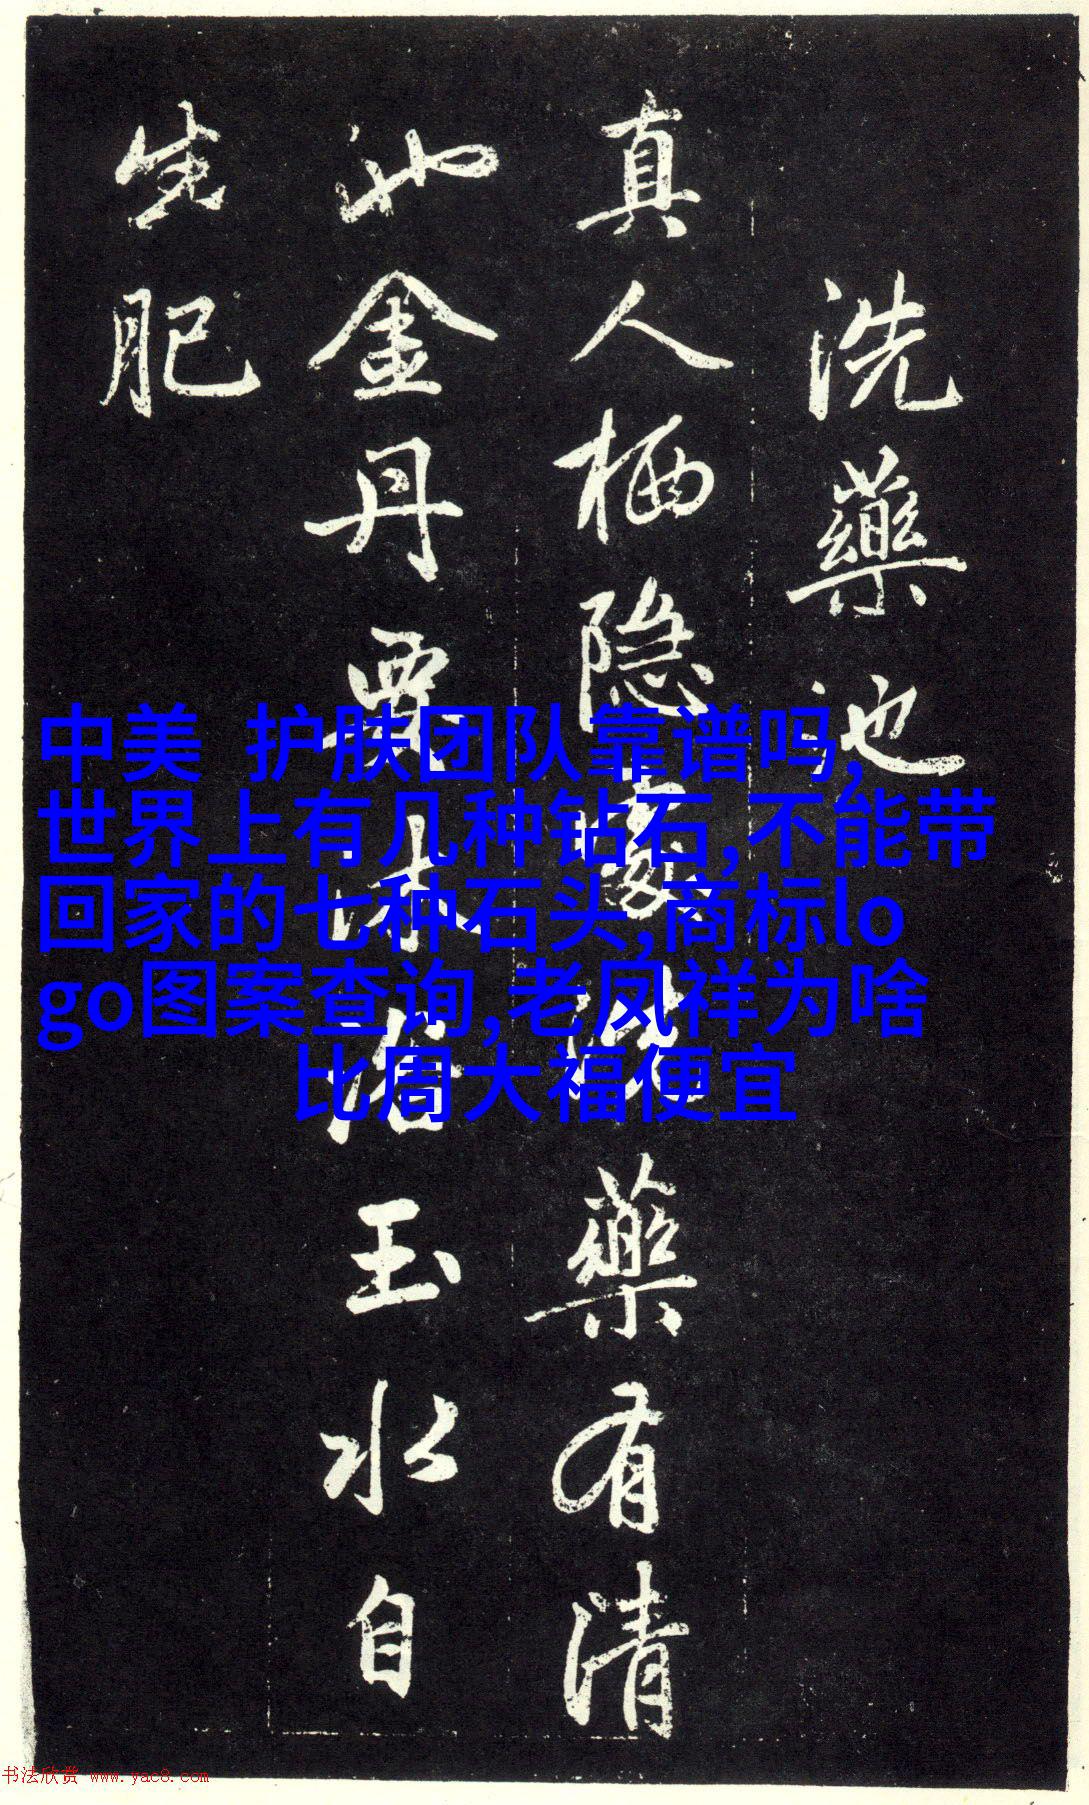 洗藥池
真人栖隐處洗藥有清
池金丹要沐浴玉水自
生肥
中美 护肤团队靠谱吗,
世界上有几种钻石,不能带
回家的七种石头,商标lo
go图案查询,老凤祥为啥
比周大福便宜
书法欣赏 www.yac8.com